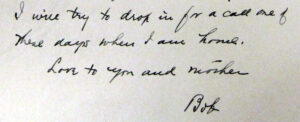 I will try to drop in for a call one of
these days when I am home.
Love to you and mother
Bob